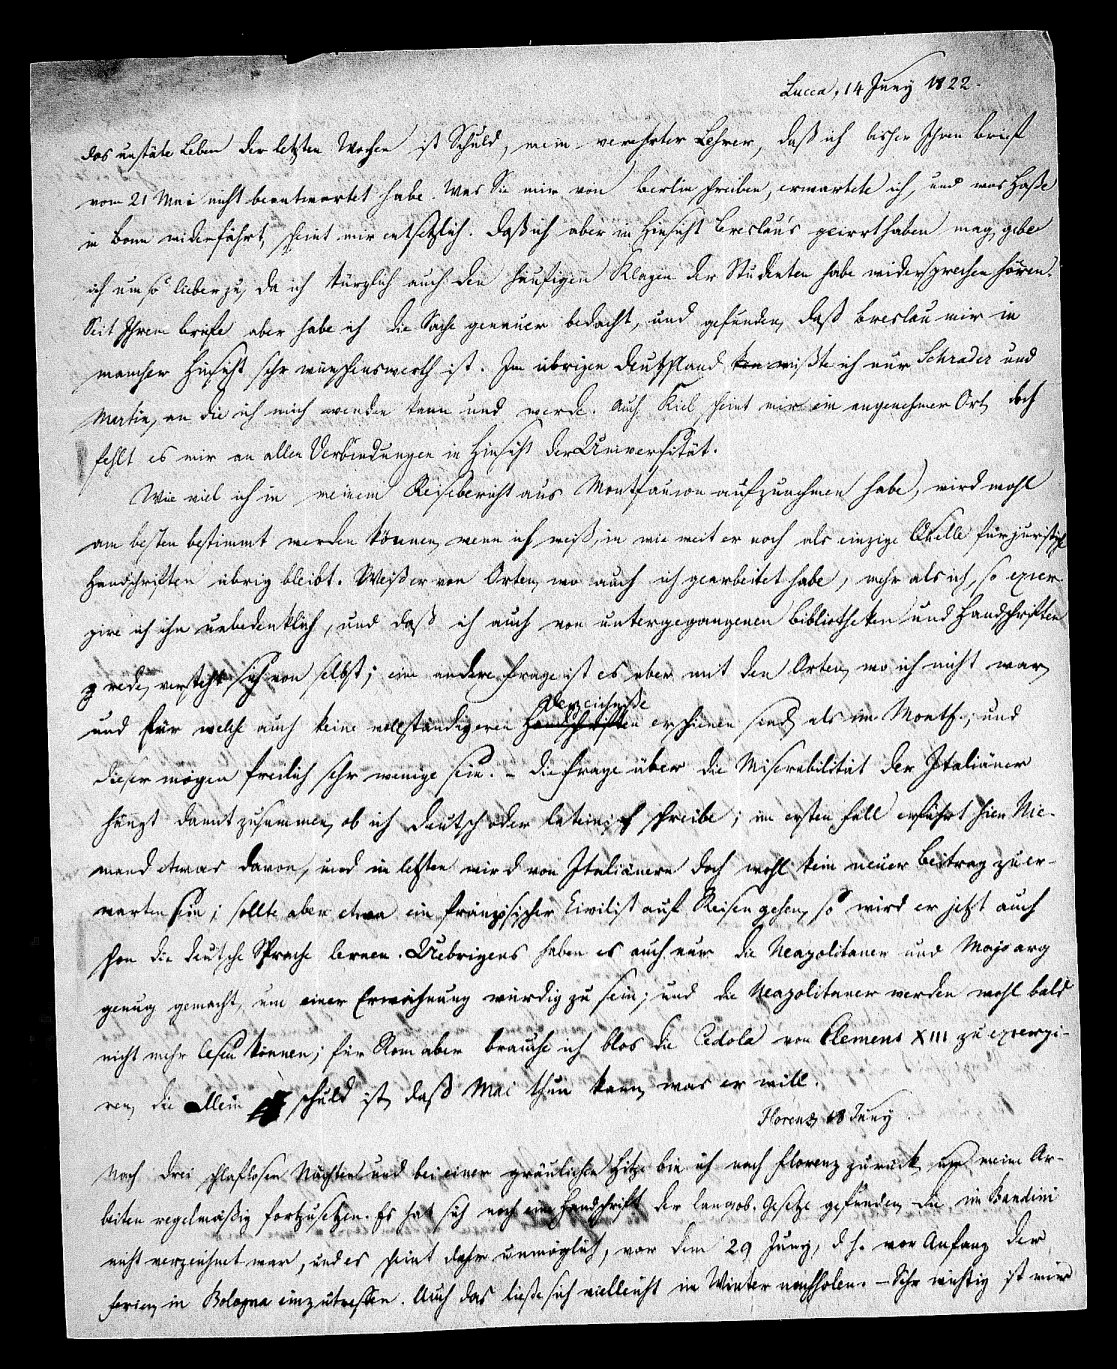 Lucca, 14 Juny 1822.
das unstäte Leben der letzten Wochen ist Schuld, mein verehrter Lehrer, daß ich bisher Ihren Brief
vom 21 Mai nicht beantwortet habe. Was Sie mir von Berlin schreiben, erwartete ich, und was Hasse
in Bonn widerfährt, scheint mir entsetzlich. Daß ich aber in Hinsicht Breslau's geirrt haben mag, gebe
ich um so lieber zu, da ich kürzlich auch den häufigen Klagen der Studenten habe widersprechen hören.
Seit Ihrem Briefe aber habe ich die Sache genauer bedacht, und gefunden, daß Breslau mir in
mancher Hinsicht sehr wünschenswerth ist. Im übrigen Deutschland wüßte ich nur Schrader und
Martin, an die ich mich wenden kann und werde. Auch Kiel scheint mir ein angenehmer Ort, doch
fehlt es mir an allen Verbindungen in Hinsicht der Universität.
Wie viel ich in meinem Reisebericht aus Montfaucon aufzunehmen habe, wird wohl
am besten bestimmt werden können, wenn ich weiß, in wie weit er noch als einzige Quelle für juristische
Handschriften übrig bleibt. Weiß er von Orten, wo auch ich gearbeitet habe, mehr als ich, so excer-
pire ich ihn unbedenklich, und daß ich auch von untergegangenen Bibliotheken und Handschriften
rede, versteht sich von selbst; eine andere Frage ist es aber mit den Orten, wo ich nicht war,
und für welche auch keine vollständigeren Verzeichnisse erschienen sind, als im Montf., und
dieser mögen freilich sehr wenige sein. – Die Frage über die Miserabilität der Italiäner
hängt damit zusammen, ob ich deutsch oder lateinisch schreibe; im ersten Fall erfährt hier Nie-
mand etwas davon, und im letzten wird von Italiänern doch wohl kein neuer Beitrag zu er-
warten sein; sollte aber etwa ein französischer Civilist auf Reisen gehen, so wird er jetzt auch
schon die deutsche Sprache lernen. Uebrigens haben es auch nur die Neapolitaner und Majo arg
genug gemacht, um einer Erwähnung würdig zu sein; und die Neapolitaner werden wohl bald
nicht mehr lesen können; für Rom aber brauche ich blos die Cedola von Clemens XIII zu excerpi-
ren, die allein schuld ist, daß Mai thun kann, was er will.
Florenz, 18 Juny.
Nach drei schlaflosen Nächten und bei einer gräulichen Hitze bin ich nach Florenz zurück, um meine Ar-
beiten regelmäßig fortzusetzen. Es hat sich noch eine Handschrift der langob. Gesetze gefunden, die im Bandini
nicht verzeichnet war, und es scheint daher unmöglich, vor dem 29 Juny, d. h. vor Anfang der
Ferien, in Bologna einzutreffen. Auch das ließe sich vielleicht im Winter nachholen. – Sehr wichtig ist mir